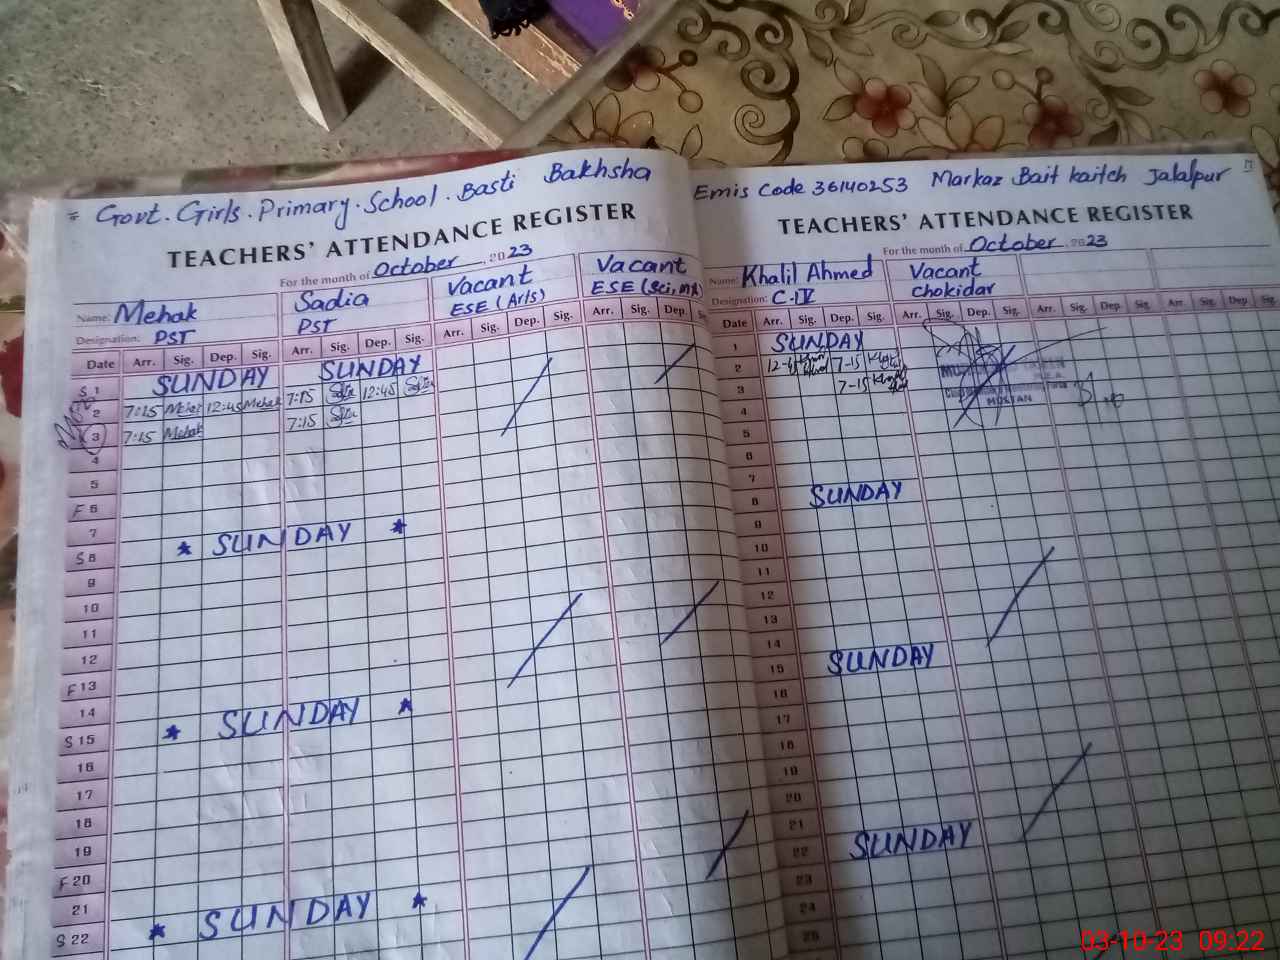 Govt. Girls. Primary. School. Basti Bakhsha
TEACHERS' ATTENDANCE REGISTER
For the month of October 2023
Name: Mehak Sadia Vacant Vacant
Designation: PST PST ESE (Arts) ESE (Sci,
Date Arr. Sig. Dep. Sig. Arr. Sig. Dep. Sig. Arr. Sig. Dep. Sig. Arr. Sig. Dep.
S 1 SUNDAY SUNDAY
2 7:15 Mehak 12:45 Mehak 7:15 12:45
3 7:15 Mehak 7:15
4
5
F 6
7
S 8 * SUNDAY *
9
10
11
12
F 13
14
S 15 * SUNDAY *
16
17
18
19
F 20
21
S 22 * SUNDAY *
Emis Code 36140253 Markaz Bait Kaitch Jalalpur
TEACHERS' ATTENDANCE REGISTER
For the month of October 2023
Name: Khalil Ahmed Vacant
Designation: C-IV Chokidar
Date Arr. Sig. Dep. Sig. Arr. Sig. Dep. Sig. Arr. Sig. Dep. Sig. Arr. Sig. Dep. Sig.
1 SUNDAY
2 7-15
3 7-15
MULTAN
4
5
6
7
8 SUNDAY
9
10
11
12
13
14
15 SUNDAY
16
17
18
19
20
21
22 SUNDAY
23
24
25
03-10-23 09:22